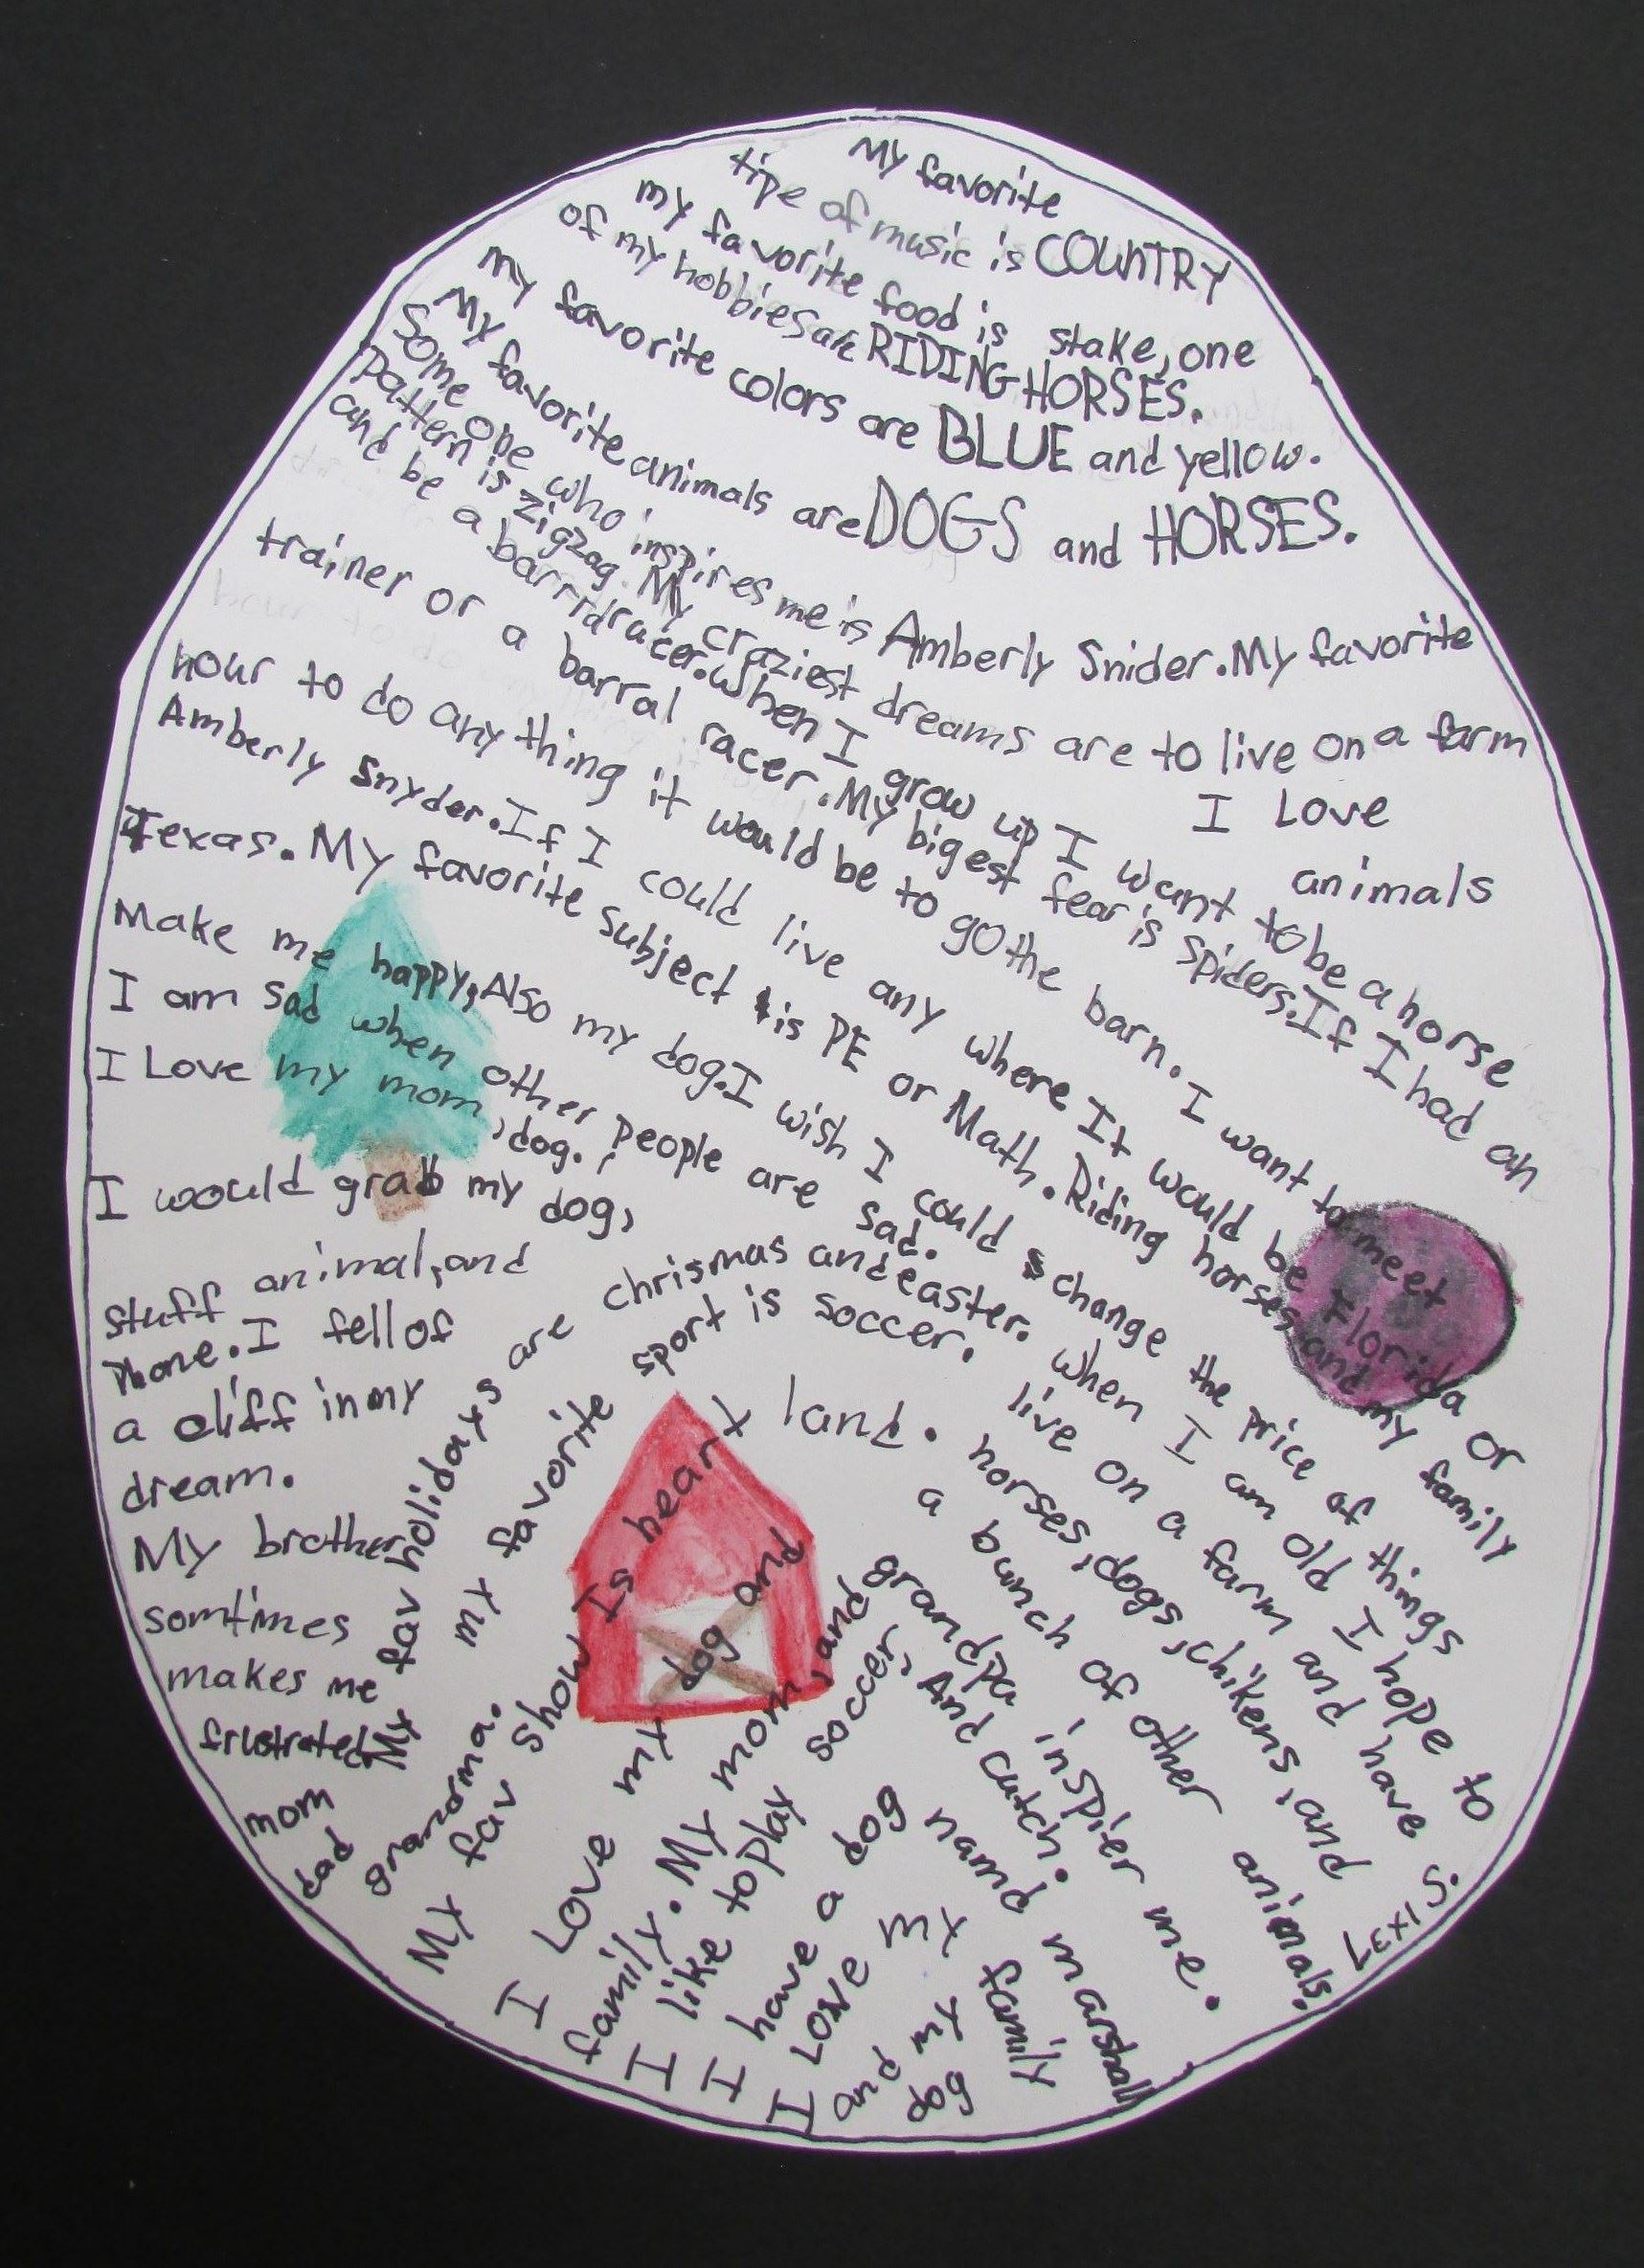 My favorite
tipe of music is COUNTRY
my favorite food is stake, one
of my hobbies are RIDING HORSES.
my favorite colors are BLUE and yellow.
My favorite animals are DOGS and HORSES.
Some one who inspires me is Amberly Snider. My favorite
pattern is zigzag. My craziest dreams are to live on a farm
and be a barrldracer. When I grow up I want to be a horse
trainer or a barral racer. My bigest fear is spiders. If I had an
hour to do any thing it would be to go the barn. I want to meet
Amberly Snyder. If I could live any where It would be Florida or
Texas. My favorite subject is PE or Math. Riding horses and my family
Make me happy, Also my dog. I wish I could change the price of things
I am sad when other people are sad. When I am old I hope to
I Love my mom, dog.
live on a farm and have
horses, dogs, chikens, and
a bunch of other animals.
I Love
animals
I would grab my dog,
stuff animal, and
Phone. I fell of
a cliff in my
dream.
My brother
somtimes
makes me
frustrated
My fav holidays are chrismas and easter.
my favorite sport is soccer.
My fav show Is heart land.
mom
dad
granoma.
I LOVE my dog and
family. My mom, and
grandpa inspier me.
I like to play soccer, And cutch.
I have a dog namd marshall
I LOVE my family
and my dog
Lexi S.